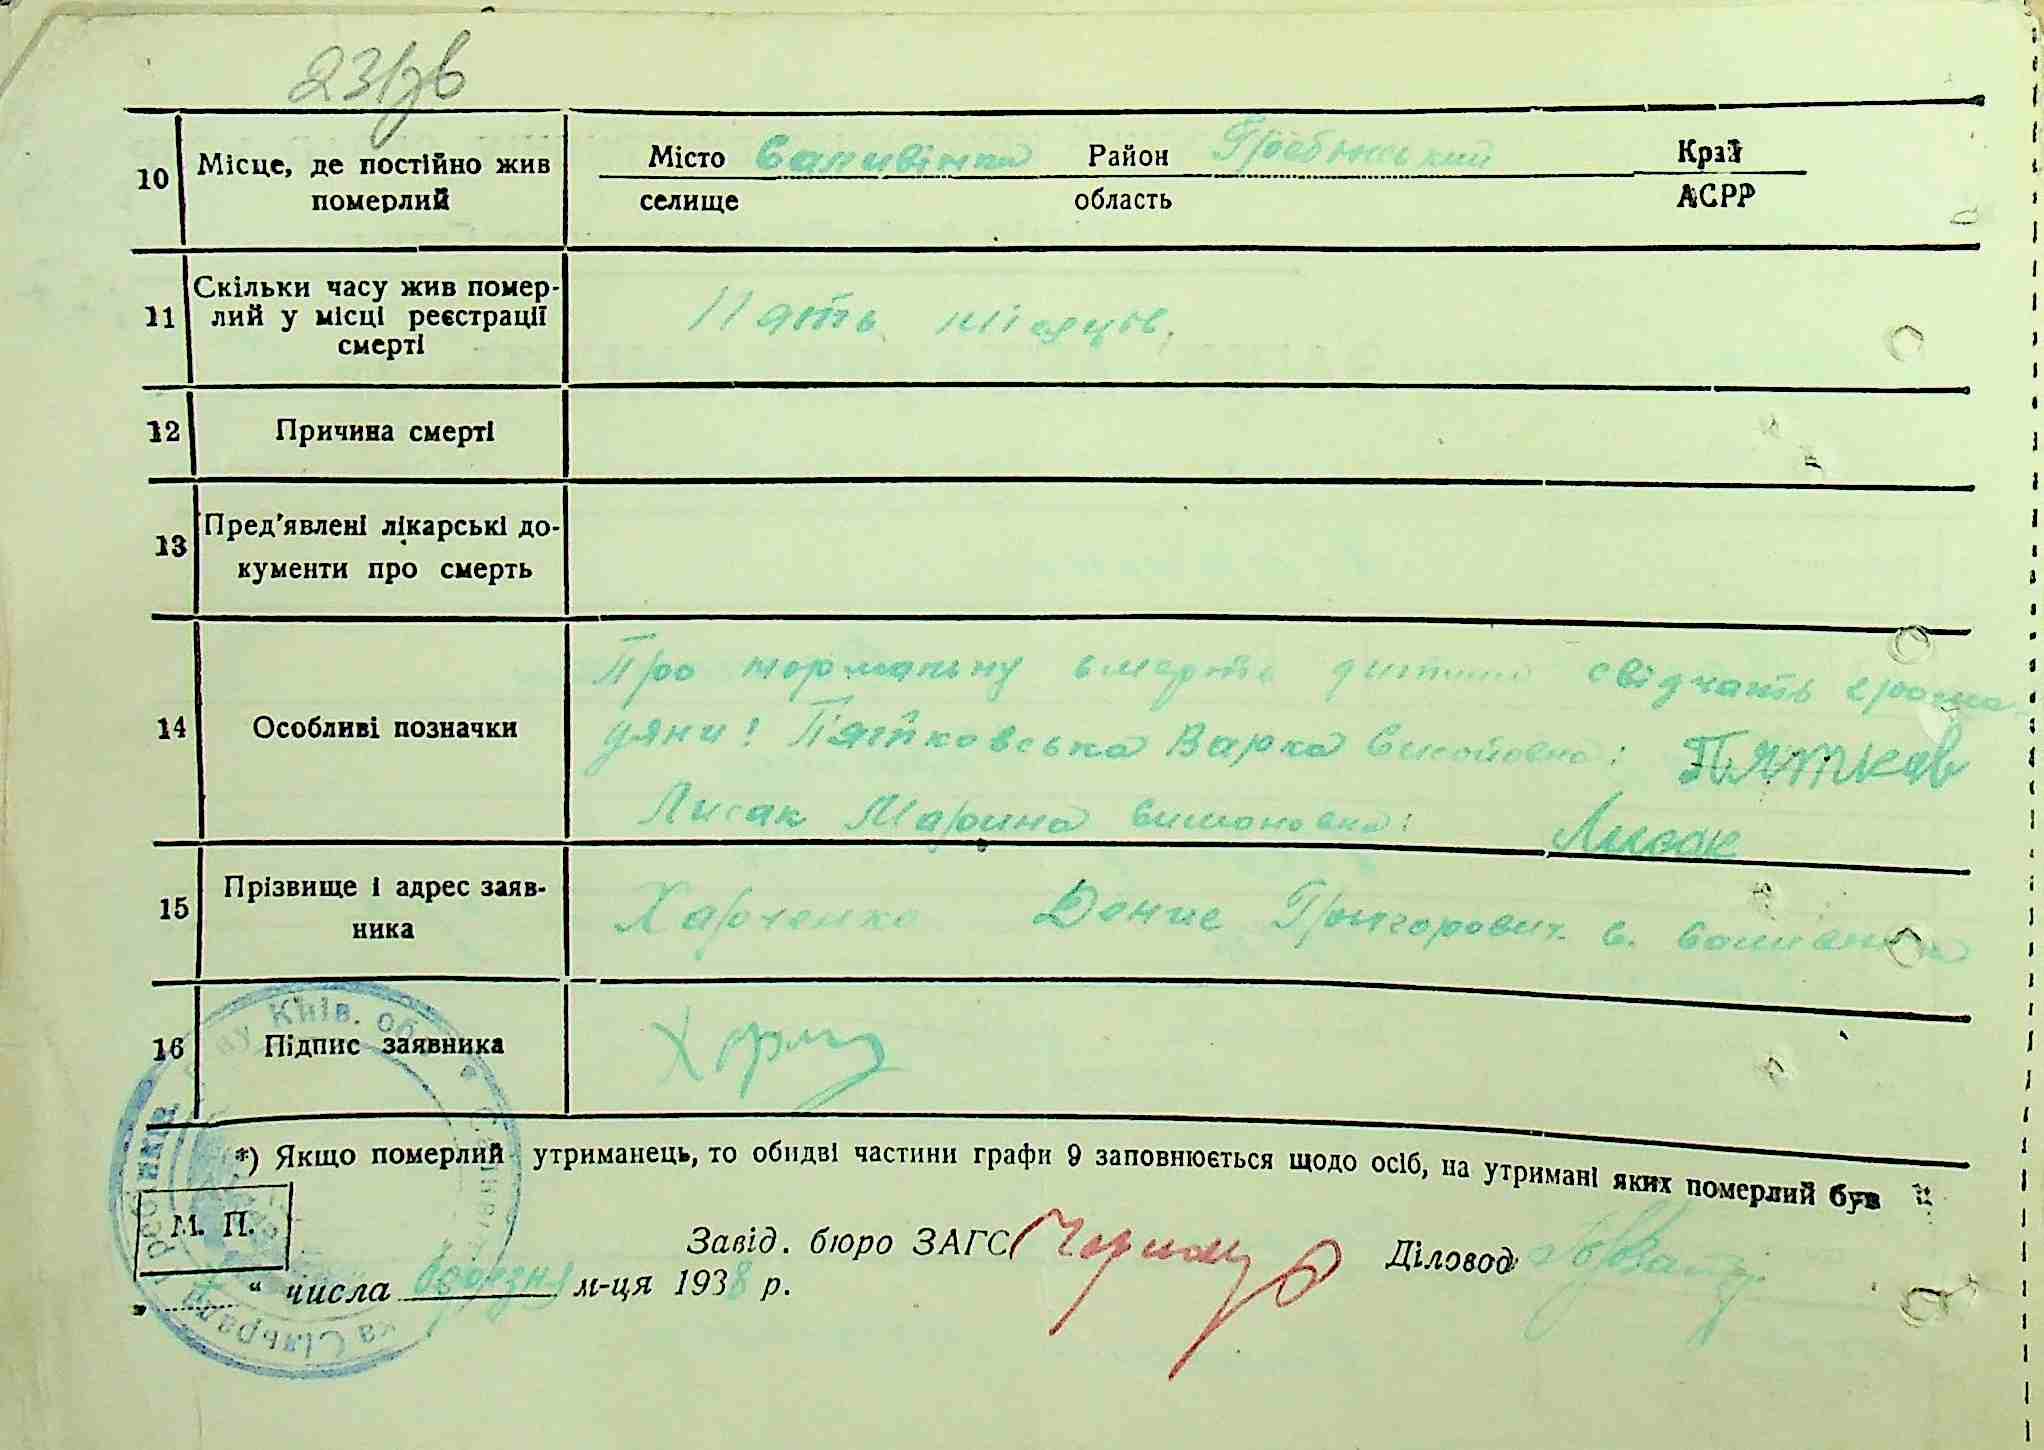 23/зв
10 Місце, де постійно жив померлий
Місто Саливінка Район Гребінський Край
селище область АСРР
11 Скільки часу жив помер-
лий у місці реєстрації
смерті
Пять місяців.
12 Причина смерті
13 Пред'явлені лікарські до-
кументи про смерть
14 Особливі позначки
Про нормальну смерть дитини свідчать грома
дяни! Пятковська Варка : Пятков
Лисак Марина : Лисак
15 Прізвище і адрес заяв-
ника
Харченко Донис Григорович с.
16 Підпис заявника
*) Якщо померлий утриманець, то обидві частини графи 9 заповнюється щодо осіб, на утримані яких померлий був
М. П.
Завід. бюро ЗАГС Діловод
„ “ числа березня м-ця 1938 р.
Київ. обл. Сільрада